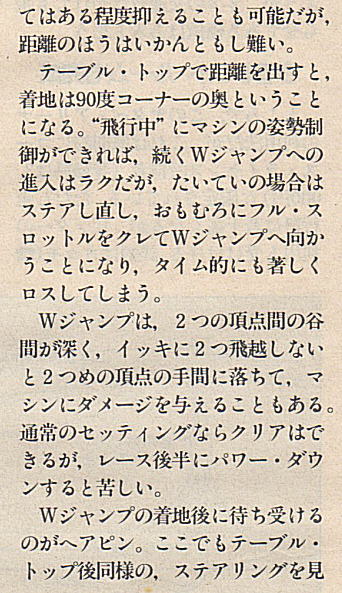 てはある程度抑えることも可能だが，
距離のほうはいかんともし難い。
テーブル・トップで距離を出すと，
着地は90度コーナーの奥ということ
になる。“飛行中”にマシンの姿勢制
御ができれば，続くWジャンプへの
進入はラクだが，たいていの場合は
ステアし直し，おもむろにフル・ス
ロットルをクレてWジャンプへ向か
うことになり，タイム的にも著しく
ロスしてしまう。
Wジャンプは，２つの頂点間の谷
間が深く，イッキに２つ飛越しない
と２つめの頂点の手間に落ちて，マ
シンにダメージを与えることもある。
通常のセッティングならクリアはで
きるが，レース後半にパワー・ダウ
ンすると苦しい。
Wジャンプの着地後に待ち受ける
のがヘアピン。ここでもテーブル・
トップ後同様の，ステアリングを見